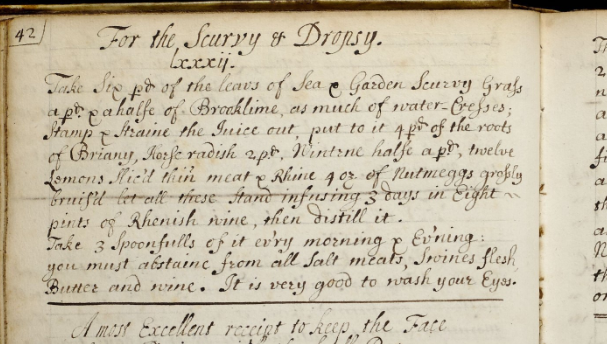 42
For the Scurvy & Dropsy.
lxxxij.
Take Six pd of the leavs of Sea & Garden Scurvy Grass
a pd & a halfe of Brooklime, as much of water-Cresses;
Stamp & Straine the Juice out, put to it 4 pd of the roots
of Briany, Horse radish 2 pd, halfe a pd, twelve
Lemons slic'd thin meat & Rhine 4 oz. of Nutmeggs grosly
bruis'd let all these Stand infusing 3 days in Eight
pints of Rhenish wine, then distill it.
Take 3 Spoonfulls of it ev'ry morning & Ev'ning:
you must abstaine from all Salt meats, Swines flesh
Butter and wine. It is very good to wash your Eyes.
A most Excellent receipt to keep the Face